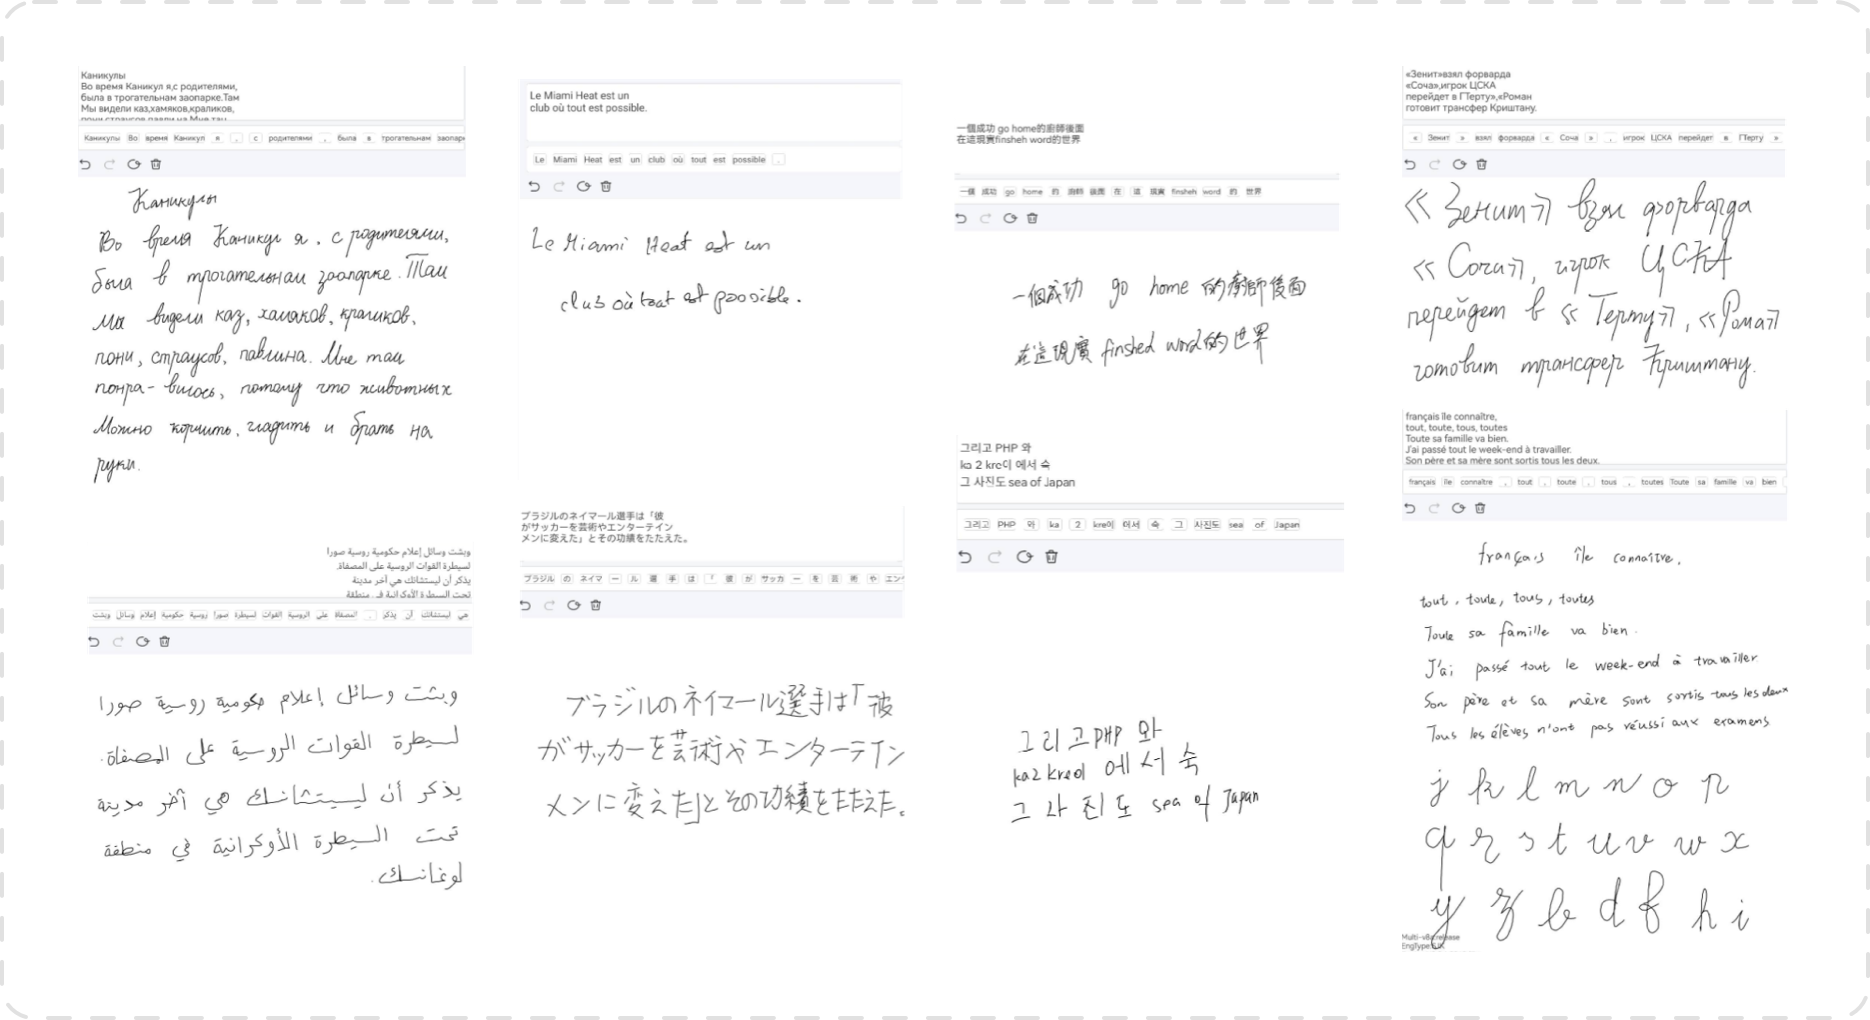 Каникулы
Во время Каникул я,с родителями,
была в трогательнам заопарке.Там
Мы видели каз,хамяков,краликов,
Каникулы Во время Каникул я , с родителями , была в трогательнам
Каникулы
Во время Каникул я, с родителями,
была в трогательнам заопарке. Там
мы видели каз, хамяков, краликов,
пони, страусов, павлина. Мне там
понра-вилось, потому что животных
Можно кормить, гладить и брать на
руки.
وبثت وسائل إعلام حكومية روسية صورا
لسيطرة القوات الروسية على المصفاة.
يذكر أن ليستشانك هي آخر مدينة
تحت السيطرة الأوكرانية في منطقة
هي ليستشانك أن يذكر . المصفاة على الروسية القوات لسيطرة صورا روسية حكومية إعلام وسائل وبثت
وبثت وسائل إعلام حكومية روسية صورا
لسيطرة القوات الروسية على المصفاة.
يذكر أن ليستشانك هي آخر مدينة
تحت السيطرة الأوكرانية في منطقة
لوغانسك.
Le Miami Heat est un
club où tout est possible.
Le Miami Heat est un club où tout est possible .
Le Miami Heat est un
club où tout est possible.
ブラジルのネイマール選手は「彼
がサッカーを芸術やエンターテイン
メンに変えた」とその功績をたたえた。
ブラジル の ネイマ ー ル 選 手 は 「 彼 が サッカ ー を 芸 術 や エン
ブラジルのネイマール選手は「彼
がサッカーを芸術やエンターテイン
メンに変えた」とその功績をたたえた。
一個成功 go home的廚師後面
在這現實finsheh word的世界
一個 成功 go home 的 廚師 後面 在 這 現實 finsheh word 的 世界
一個成功 go home 的廚師後面
在這現實 finshed word的世界
그리고 PHP 와
ka 2 kre이 에서 숙
그 사진도 sea of Japan
그리고 PHP 와 ka 2 kre이 에서 숙 그 사진도 sea of Japan
그리고 PHP 와
ka2 kre이 에서 숙
그 사진도 sea of Japan
«Зенит»взял форварда
«Соча»,игрок ЦСКА
перейдет в ГТерту»,«Роман
готовит трансфер Криштану.
« Зенит » взял форварда « Соча » , игрок ЦСКА перейдет в ГТерту »
«Зенит» взял форварда
«Сочи», игрок ЦСКА
перейдет в «Терту», «Рома»
готовит трансфер Криштану.
français île connaître,
tout, toute, tous, toutes
Toute sa famille va bien.
J'ai passé tout le week-end à travailler.
Son père et sa mère sont sortis tous les deux.
français île connaître , tout , toute , tous , toutes Toute sa famille va bien
français île connaître.
tout, toute, tous, toutes
Toute sa famille va bien.
J'ai passé tout le week-end à travailler
Son père et sa mère sont sortis tous les deux
Tous les élèves n'ont pas réussi aux examens
j k l m n o p
q r s t u v w x
y z b d f h i